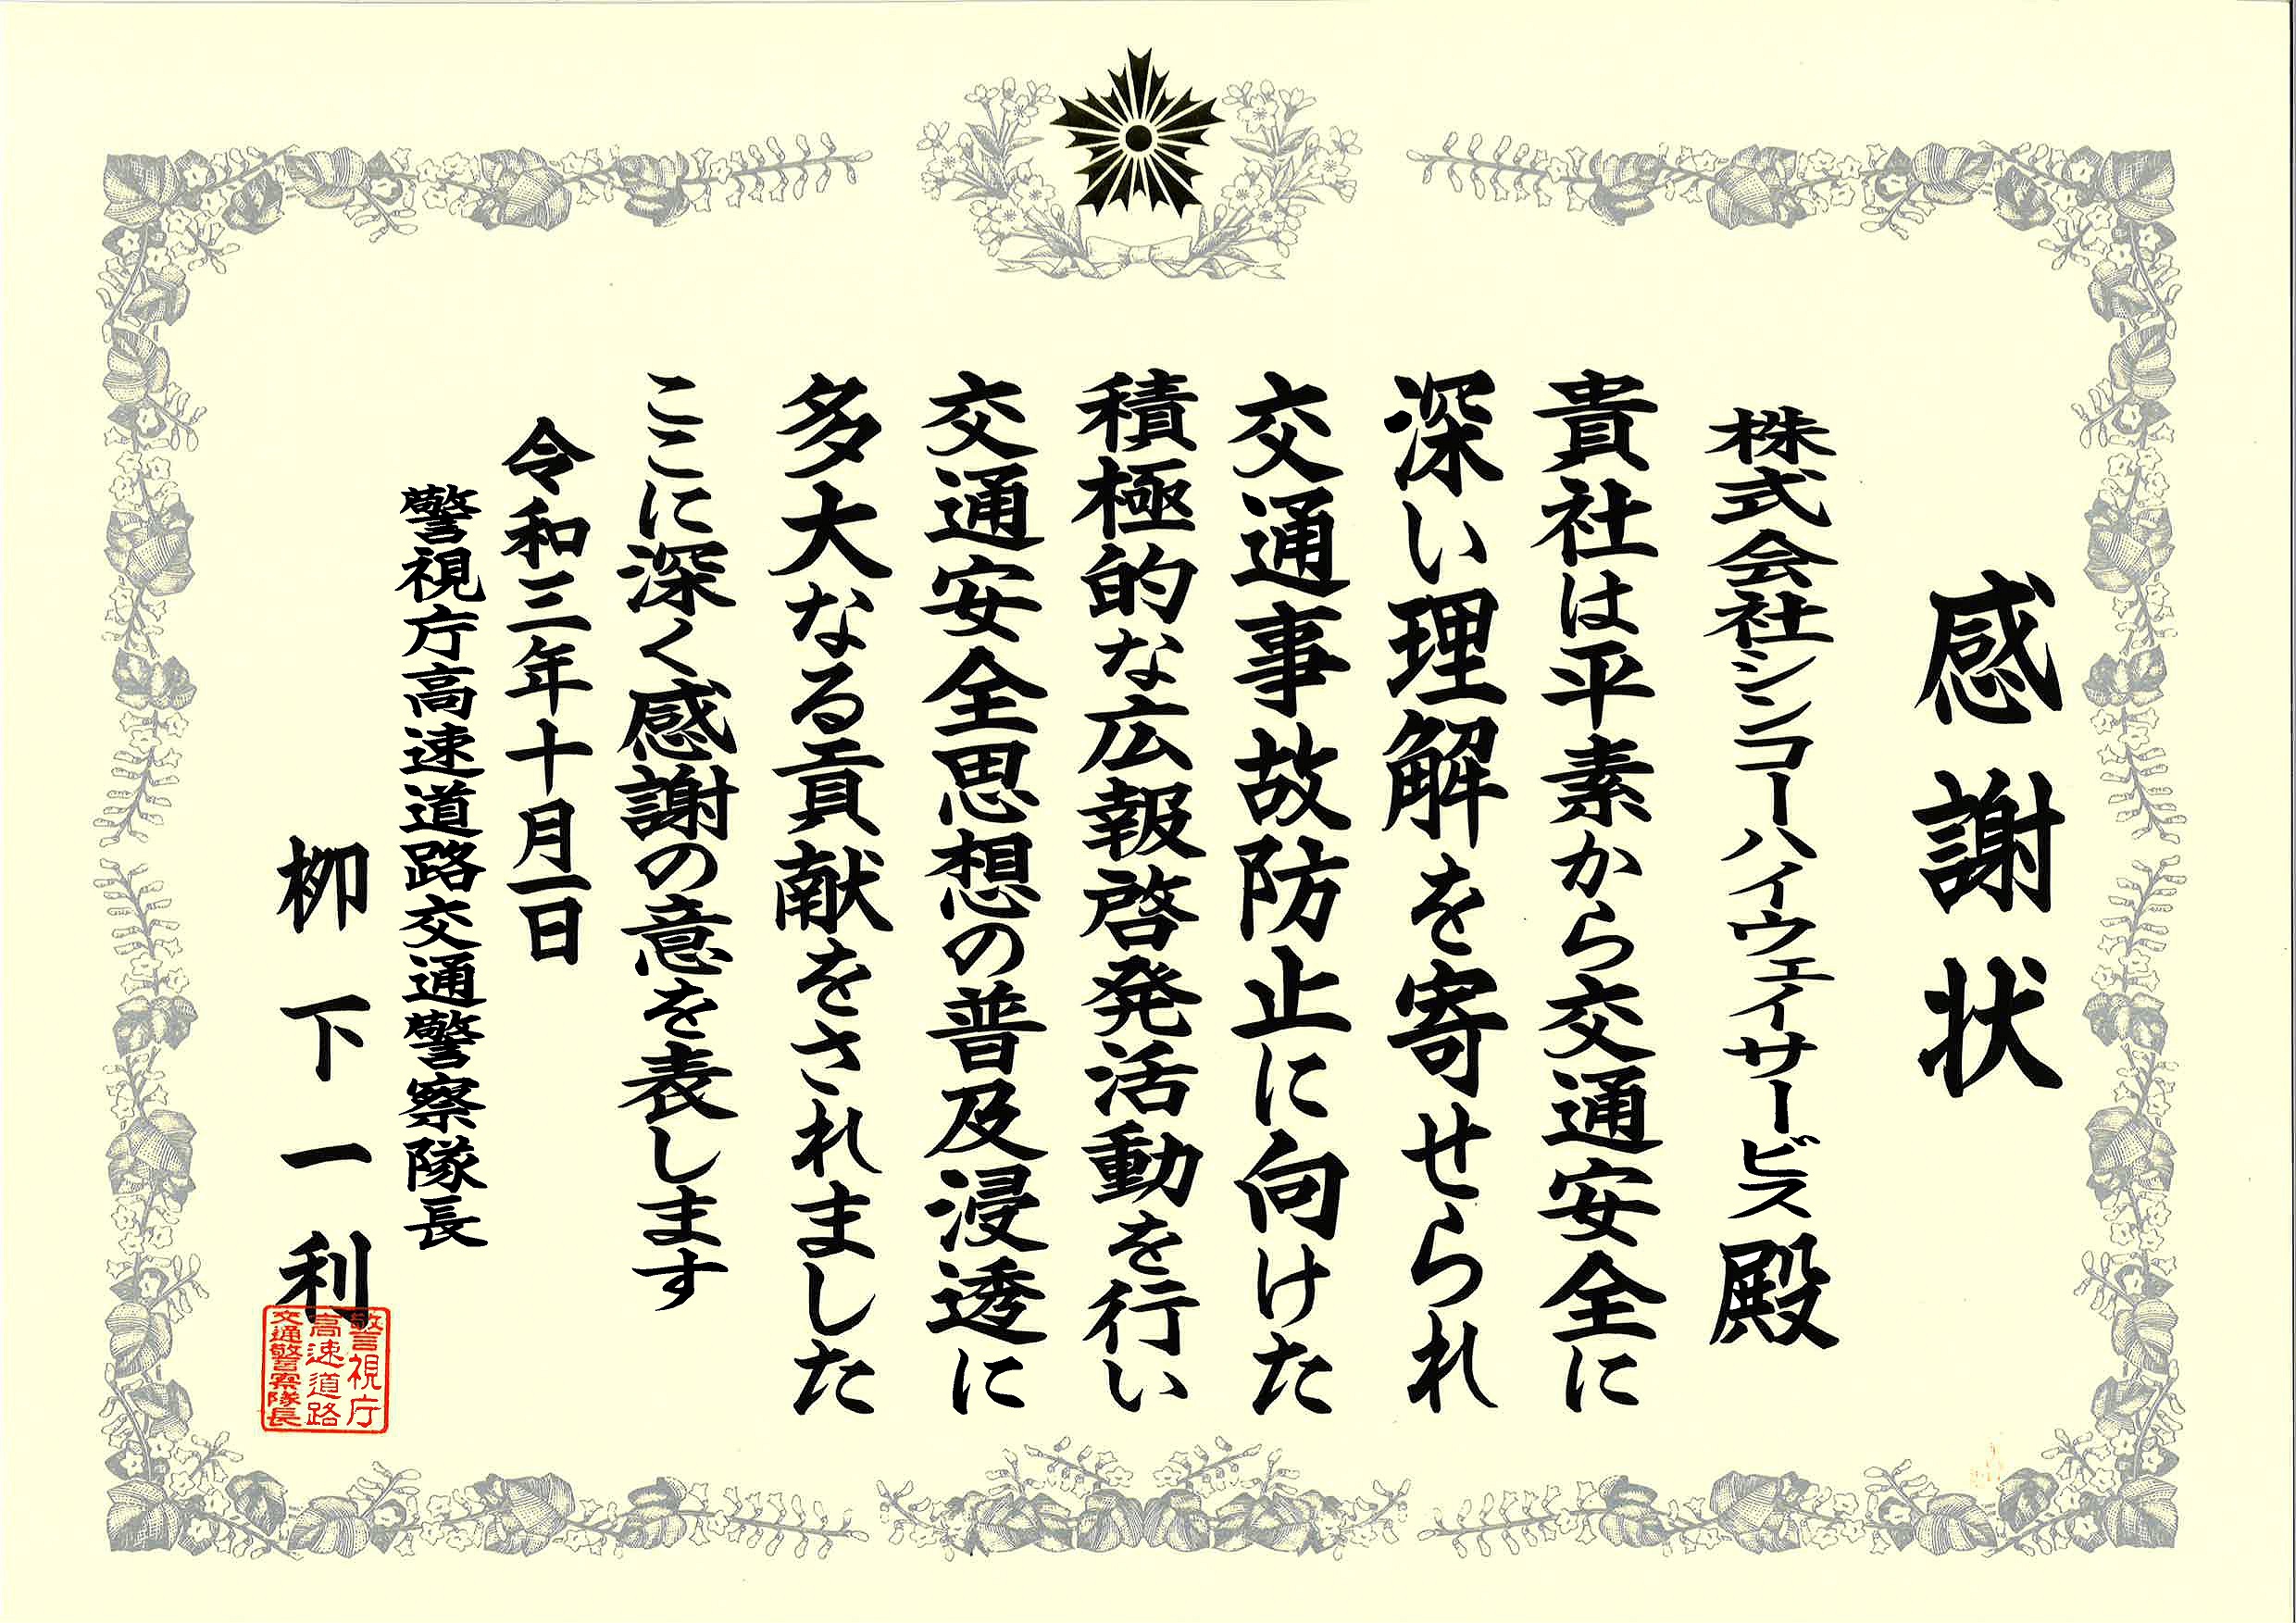 感謝状
株式会社シンコーハイウェイサービス殿
貴社は平素から交通安全に
深い理解を寄せられ
交通事故防止に向けた
積極的な広報啓発活動を行い
交通安全思想の普及浸透に
多大なる貢献をされました
ここに深く感謝の意を表します
令和三年十月一日
警視庁高速道路交通警察隊長
栁下一利
警視庁
高速道路
交通警察隊長